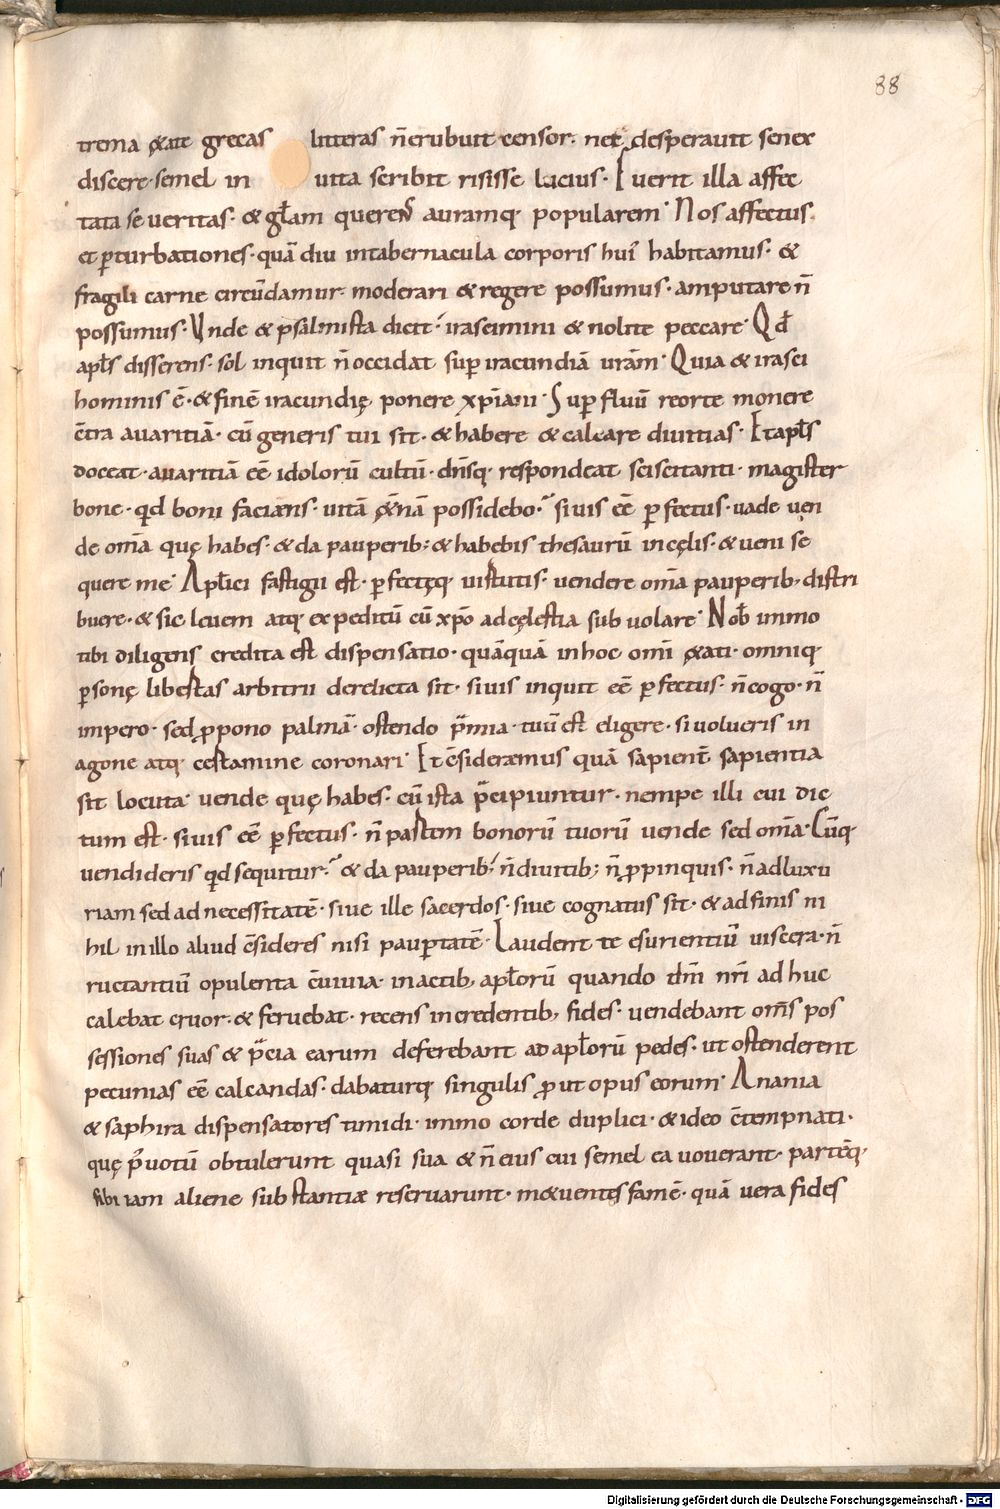 88
trema &ate grecas litteras n̄erubuit censor. nec desperauit senex
discere. semel in uita scribit risisse lucius. Fuerit illa affec
tata seueritas. & gl̄am querens auramq popularem. Nos affectus
et p̱turbationes. quā diu intabernacula corporis hui᾽ habitamus. &
fragili carne circūdamur. moderari & regere possumus. amputare n̄
possumus. Vnde & psalmista dicit. irascimini & nolite peccare. Qd̄
apl̄s disserens. sol inquit n̄ occidat sup̱ iracundiā ur̄am. Quia & irasci
hominis ē. & finē iracundię ponere xp̄iani. Sup̱fluū reor te monere
c̄tra auaritiā. cū generis tui sit. & habere & calcare diuitias. Et apl̄s
doceat. auaritiā eē idolorū cultū. dn̄sq. respondeat sciscitanti. magister
bone. qd boni facians. uitā &̄nā possidebo. si uis eē p̱fectus. uade uen
de om̄a quę habes. & da pauperib; & habebis thesaurū in cęlis. & ueni se
quere me. Apl̄ici fastigii est. p̱fectęq uirtutis. uendere om̄a pauperib; distri
buere. & sic leuem atq expeditū cū xp̄o ad cęlestia sub uolare. Nob̄ immo
tibi diligens credita est dispensatio. quāquā in hoc om̄i &ati. omniq
p̱sonę libertas arbitrii derelicta sit. si uis inquit eē p̱fectus. n̄ cogo. n̄
impero. sed p̱pono palmā. ostendo p̄mia. tuū est eligere. si uolueris in
agone atq certamine coronari. Et c̄sideremus quā sapient̄ sapientia
sit locuta. uende quę habes. cū ista p̄cipiuntur. nempe illi cui dic
tum est. si uis eē p̱fectus. n̄ partem bonorū tuorū uende sed om̄a. Cūq
uendideris qd sequitur. & da pauperib; n̄ diuitib; n̄ p̱pinquis. n̄ ad luxu
riam sed ad necessitatē. siue ille sacerdos. siue cognatus sit. & adfinis ni
hil in illo aliud c̄sideres nisi paup̱tatē. Laudent te esurientiū uiscera. n̄
ructantiū opulenta c̄uiuia. in actib; apl̄orū quando dn̄i nr̄i ad huc
calebat cruor. & feruebat. recens in credentib; fides. uendebant om̄s pos
sessiones suas & p̄cia earum deferebant ad apl̄orū pedes. ut ostenderent
pecunias eē calcandas. dabaturq singulis p̱ ut opus eorum. Anania
& saphira dispensatores timidi. immo corde duplici. & ideo c̄tempnati.
quę p̄ uotū obtulerunt quasi sua & n̄ eius cui semel ea uouerant. partēq
sibi iam aliene substantiæ reseruarunt. m&uentes famē. quā uera fides
Digitalisierung gefördert durch die Deutsche Forschungsgemeinschaft - DFG